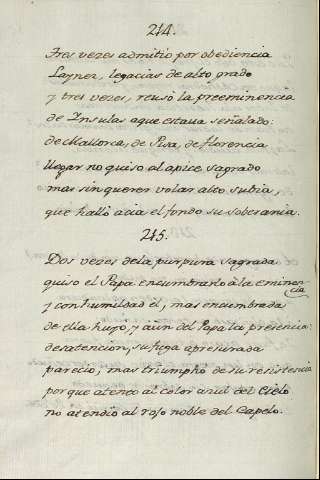 214.
Tres vezes admitio por obediencia
Laynez, legacias de alto grado
y tres vezes, reusò la preeminencia
de Insulas aque estaua señalado:
de Mallorca, de Pisa, de florencia
llegar no quiso al apice sagrado
mas sin querer volar alto subia,
que hallò acia el fondo su soberania.
215.
Dos vezes dela purpura sagrada
quiso el Papa encumbrarlo à la eminen-
cia
y con humildad èl, mas encumbrada
de ella huyo, y aun del Papa la presencia:
desatencion, su fuga apresurada
parecio; mas triumphò de su resistencia
porque atento al color azul del Cielo
no atendio al rojo noble del Capelo.